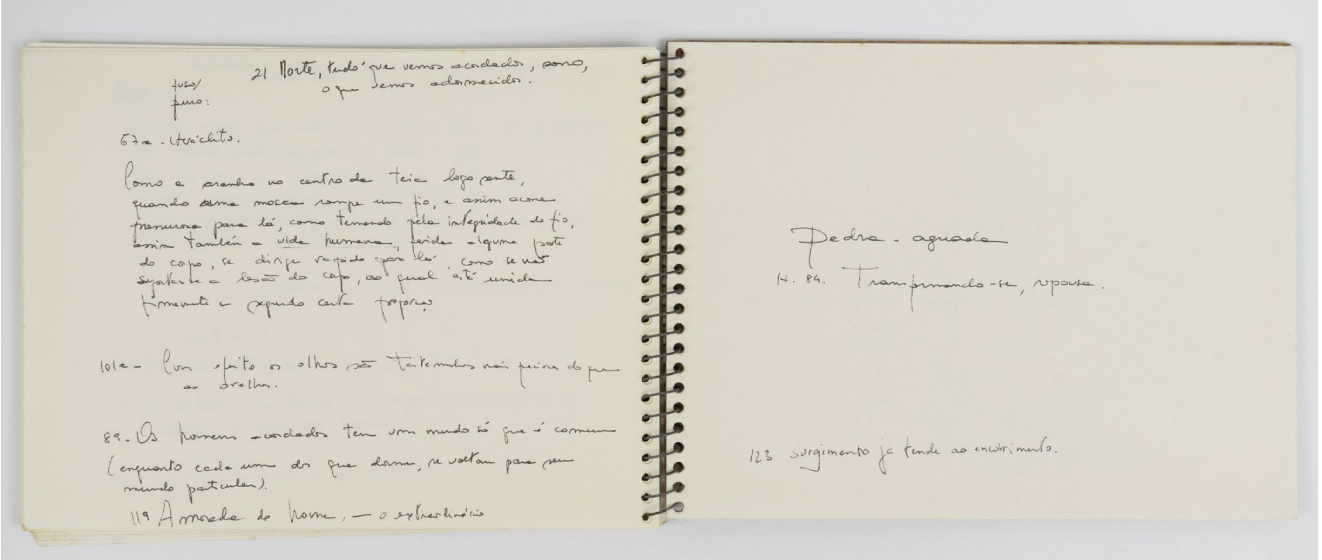 21 Morte, tudo que vemos acordados, sono,
o que vemos adormecidos.
fuso/
puro:
67a - Heráclito.
Como a aranha no centro da teia logo sente,
quando uma mosca rompe um fio, e assim acorre
pressurosa para lá, como temendo pela integridade do fio,
assim também a vida humana, ferida alguma parte
do corpo, se dirige rápido para lá como se não
suportasse a lesão do corpo, ao qual está unida
firmemente e segundo certa proporção
101a - Com efeito os olhos são testemunhas mais precisas do que
as orelhas.
89 - Os homens acordados tem um mundo só que é comum
(enquanto cada um dos que dorme, se voltam para seu
mundo particular).
119 A morada do home, — o extraordinário
Pedra - aguada
H. 84. Transformando-se, repousa.
123 surgimento já tende ao encobrimento.